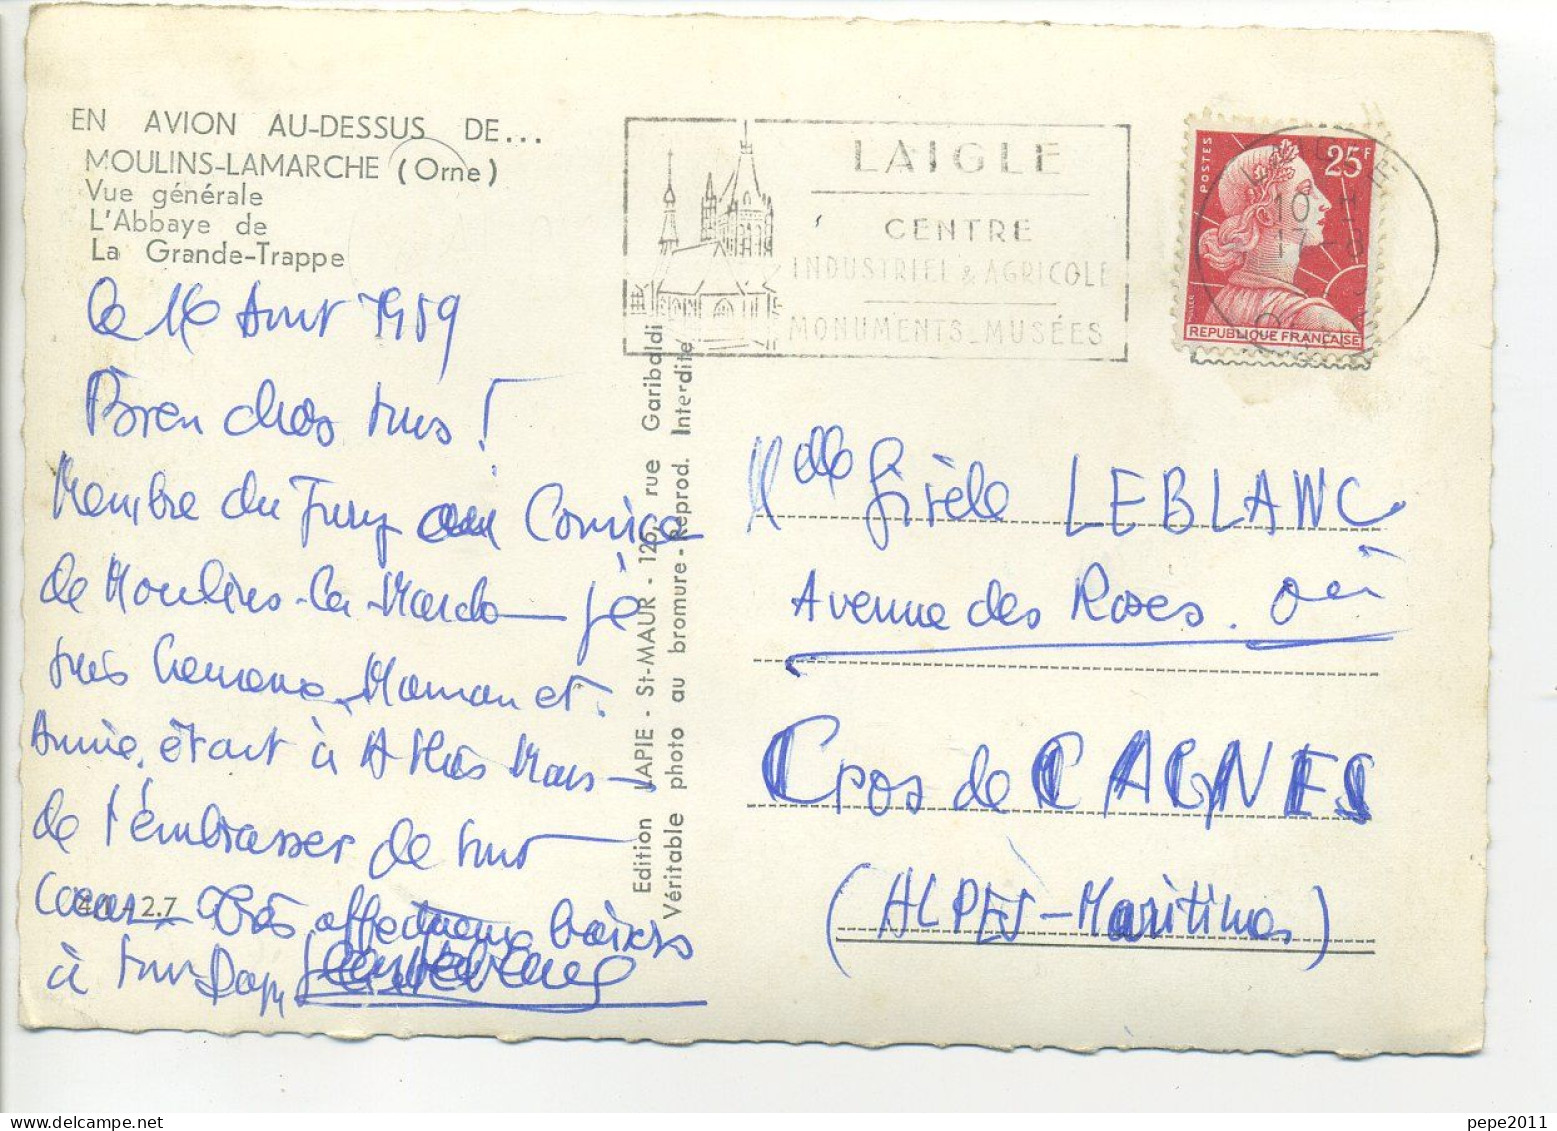 EN AVION AU-DESSUS DE...
MOULINS-LAMARCHE (Orne)
Vue générale
L'Abbaye de
La Grande-Trappe
Le 16 Aout 1959
Bien chers tous !
Membre du Jury au Comice
de Moulins-la-Marche je
suis heureux, Maman et
Annie, étant à Athis Mons
de t'embrasser de tout
coeur. Très affectueux baisers
à tous Papy
2.7
Edition LAPIE - St-MAUR - 125, rue Garibaldi
Véritable photo au bromure - Reprod. Interdite
LAIGLE
CENTRE
INDUSTRIEL & AGRICOLE
MONUMENTS_MUSÉES
POSTES
25F
MULLER
REPUBLIQUE FRANÇAISE
10 H
17-8
Mlle Gisèle LEBLANC
Avenue des Roses.
Cros de CAGNES
(ALPES-Maritimes)
pepe2011